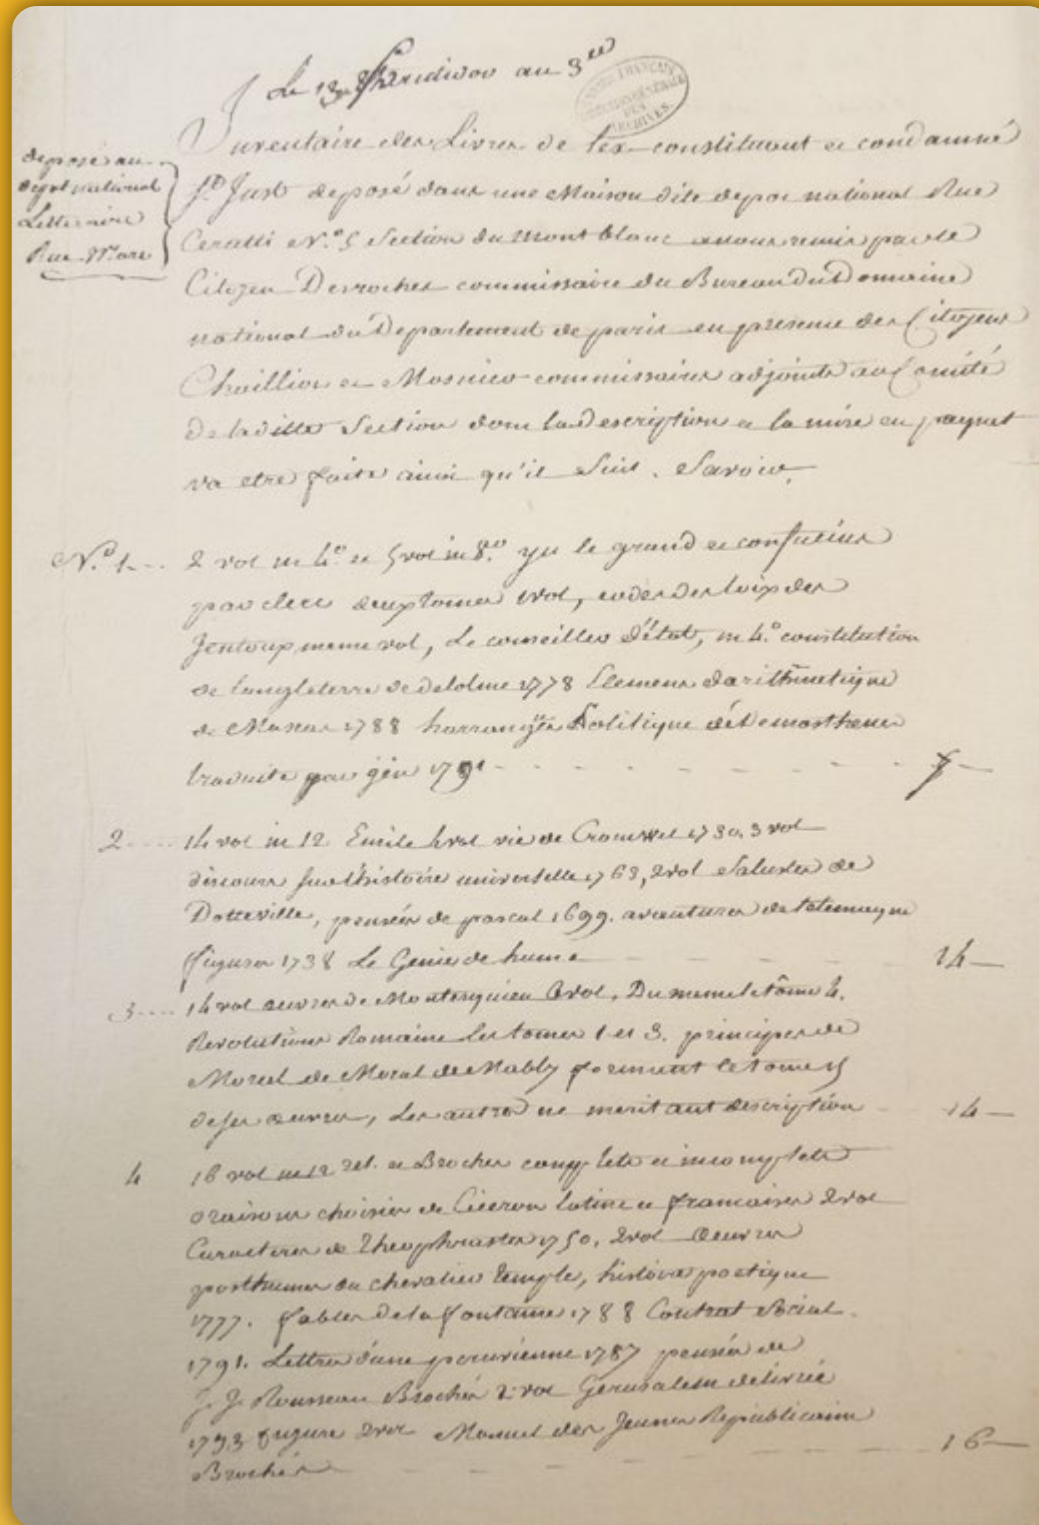 Le 13 Fructidor an 3me
ARCHIVES
Inventaire des Livres de l'ex-constituant et condamné
St. Just deposé dans une Maison dite depot national Rue
Ceratti N.o 5 Section du Mont blanc a nous remis par le
Citoyen Desrochet commissaire du Bureau du Domaine
national du Departement de paris en presence des Citoyens
Chaillion et commissaires adjoints au Comité
de la ditte Section dont la description et la mise en paquet
va etre faite ainsi qu'il Suit. Savoir,
deposé au
depot national
Litteraire
Rue Marc
N.o 1 -- 2 vol in 4.o et 5 vol in 8.o yu le grand et confucius
par clerc deux tomes 1 vol, codes des loix des
Jentoux meme vol, Le conseiller d'état, in 4.o constitution
de langleterre de delolme 1778 Elemens darithmetique
de 1788 harrangues Politique de demosthenes
traduite par gin 1791 - - - - 7 -
2 ---- 14 vol in 12 Emile 4 vol vie de Cromwel 1730. 3 vol
discours sur l'histoire universelle 1763, 2 vol Saluste de
Dotteville, pensées de pascal 1699. avantures de telemaque
figures 1738 Le Genie de hume - - - 14 -
3 ---- 14 vol œuvres de Montesquieu 6 vol, Du meme le tôme 4.
Revolutions Romaine les tomes 1 et 3. principes de
Morel de Moral de Mably formant le tome 15
de ses œuvres, Les autres ne meritant description - 14 -
4 16 vol in 12 rel. et Brochés complets et incomplets
oraisons choisies de Ciceron latine et francaises 2 vol
Caracteres de Theophraste 1750. 2 vol Oeuvres
posthumes du chevalier Temple, histoire poetique
1777. fables de la fontaine 1788 Contrat Social
1791. Lettres d'une peruvienne 1787 pensées de
J. J. Rousseau Brochés 2 vol Gerusalem délivrée
1793 figure 2 vol Manuel des Jeunes Republicains
Brochés - - - - 16 -